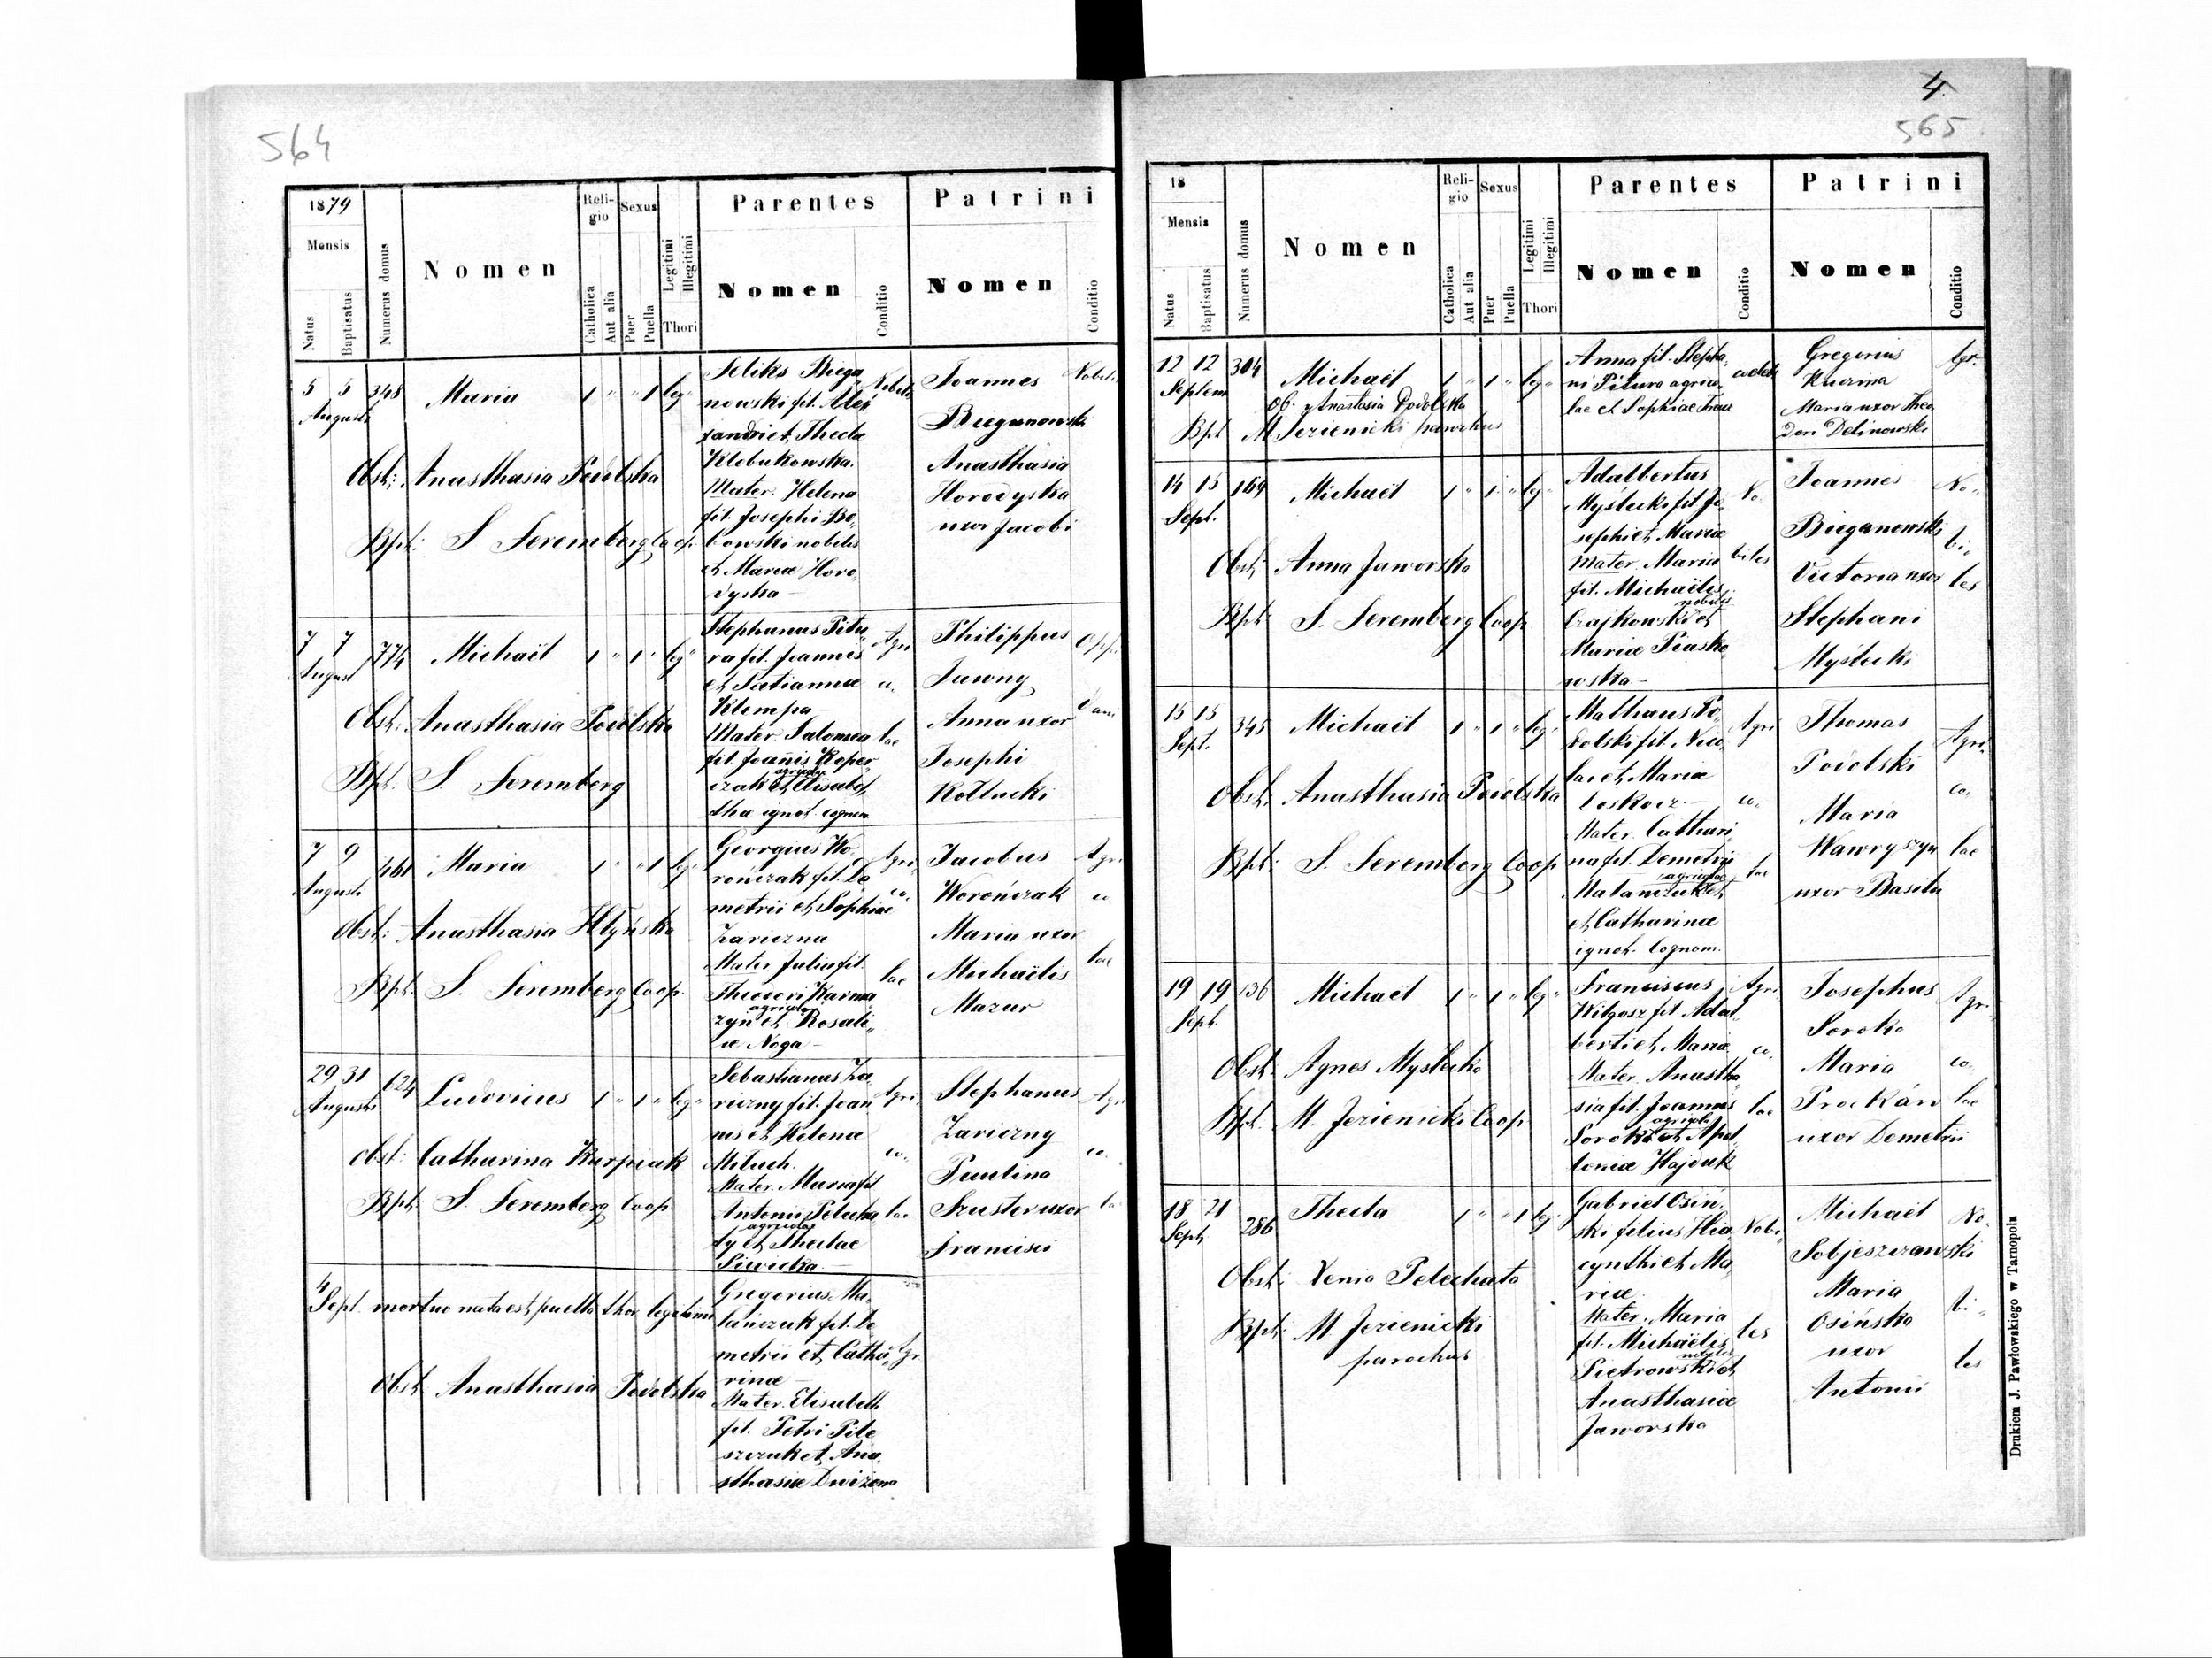 564
1879
Mensis
Natus
Baptisatus
Numerus domus
Nomen
Religio
Catholica
Aut alia
Sexus
Puer
Puella
Legitimi
Illegitimi
Thori
Parentes
Nomen
Conditio
Patrini
Nomen
Conditio
5 5 348 Maria 1 " " 1 leg"
Augusti
Obst: Anasthasia Podolska
Bpt: S Seremberg Coop
Feliks Biega
nowski fil. Alex
xandri et Theclae
Klobukowska.
Mater. Helena
fil. Josephi Bo„
bowski nobilis
et Mariae Horo„
dyska —
Nobiles
Joannes
Bieganowski
Anasthasia
Horodyska
uxor Jacobi
Nobiles
7 7 774 Michaël 1 " 1 " leg"
August
Obst: Anasthasia Podolska
Bpt. S. Seremberg
Stephanus Pitu„
ra fil. Joannis
et Tatiannae
Klempa —
Mater Salomea
fil. Joannis Koper„
czak agricolae et Elisabet„
thae ignot. cognom
Agri
co
lae
Philippus
Jawny
Anna uxor
Josephi
Kołtucki
Oppi
dani
7 9 461 Maria 1 " " 1 leg"
Augusti
Obst: Anasthasia Hłyńska
Bpt. S. Seremberg Coop.
Georgius Wo„
rończak fil. De
metrii et Sophiae
Zariczna
Mater Julia fil.
Theodori Karma
zyn agricolae et Rosali„
ae Noga —
Agri
co
lae
Jacobus
Worończak
Maria uxor
Michaëlis
Mazur
Agri
co
lae
29 31 624 Ludovicus 1 " 1 " leg"
Augusti
Obst: Catharina Karpiak
Bpt: S. Seremberg Coop
Sebastianus Za„
riczny fil. Joan
nis et Helenae
Mituch.
Mater. Maria fil
Antonii Pelecha
ty agricolae et Theclae
Siwicka —
Agri
co
lae
Stephanus
Zariczny
Paulina
Szuster uxor
Francisci
Agri
co
4
Sept. mortuo nata est puella thor. legitimi
Obst Anasthasia Podolska
Gregorius Ma„
lanczuk fil. De
metrii et Catha„
rinae —
Mater. Elisabeth
fil. Petri Pile
szczuk et Ana
sthasiae Dwizeno
Agr
4
565
18
Mensis
Natus
Baptisatus
Numerus domus
Nomen
Religio
Catholica
Aut alia
Sexus
Puer
Puella
Legitimi
Illegitimi
Thori
Parentes
Nomen
Conditio
Patrini
Nomen
Conditio
12 12 304 Michaël 1 " 1 " leg"
Septem
Ob. Anastasia Podolska
Bpt M Jezienicki parochus
Anna fil. Stepha„
ni Pitura agrico„
lae et Sophiae
coeleb
Gregorius
Kuzma
Maria uxor Theo
dori Delinowski
Agr.
14 15 169 Michaël 1 " 1 " leg"
Sept.
Obst: Anna Jaworska
Bpt: S. Seremberg Coop
Adalbertus
Mysłecki fil Jo„
sephi et Mariae
Mater. Maria
fil. Michaëlis
Czajkowski nobilis et
Mariae Piasko„
wska —
No„
biles
Joannes
Bieganowski
Victoria uxor
Stephani
Mysłecki
No„
bi„
les
15 15 345 Michaël 1 " 1 " leg"
Sept.
Obst. Anasthasia Podolska
Bpt: S. Seremberg Coop
Mathaus Po„
dolski fil. Nico„
lai et Mariae
Mater. Cathari„
na fil. Demetrii
Malanczuk agricolae et
et Catharinae
ignot. Cognom.
Agri
co„
lae
Thomas
Podolski
Maria
Wawryszyn
uxor Basilii
Agri„
co„
lae
19 19 136 Michaël 1 " 1 " leg"
Sept.
Obst. Agnes Mysłecka
Bpt. M. Jezienicki Coop
Franciscus
Witgosz fil Adal„
berti et Mariae
Mater. Anastha„
sia fil. Joannis
Soroka agricola et Apol„
loniae Hajduk
Agri„
co„
lae
Josephus
Soroka
Maria
Prockán
uxor Demetrii
Agri„
co„
lae
18 21 286 Thecla 1 " " 1 leg.
Sept
Obst: Xenia Pelechata
Bpt: M Jezienicki
parochus
Gabriel Osin„
ski filius Hia
cynthi et Ma„
riae.
Mater. Maria
fil. Michaëlis
Pietrowski nobiles et
Anasthasiae
Jaworska
Nobi„
les
Michaël
Sobjeszczanski
Maria
Osińska
uxor
Antonii
No„
bi„
les
Drukiem J. Pawłowskiego w Tarnopolu